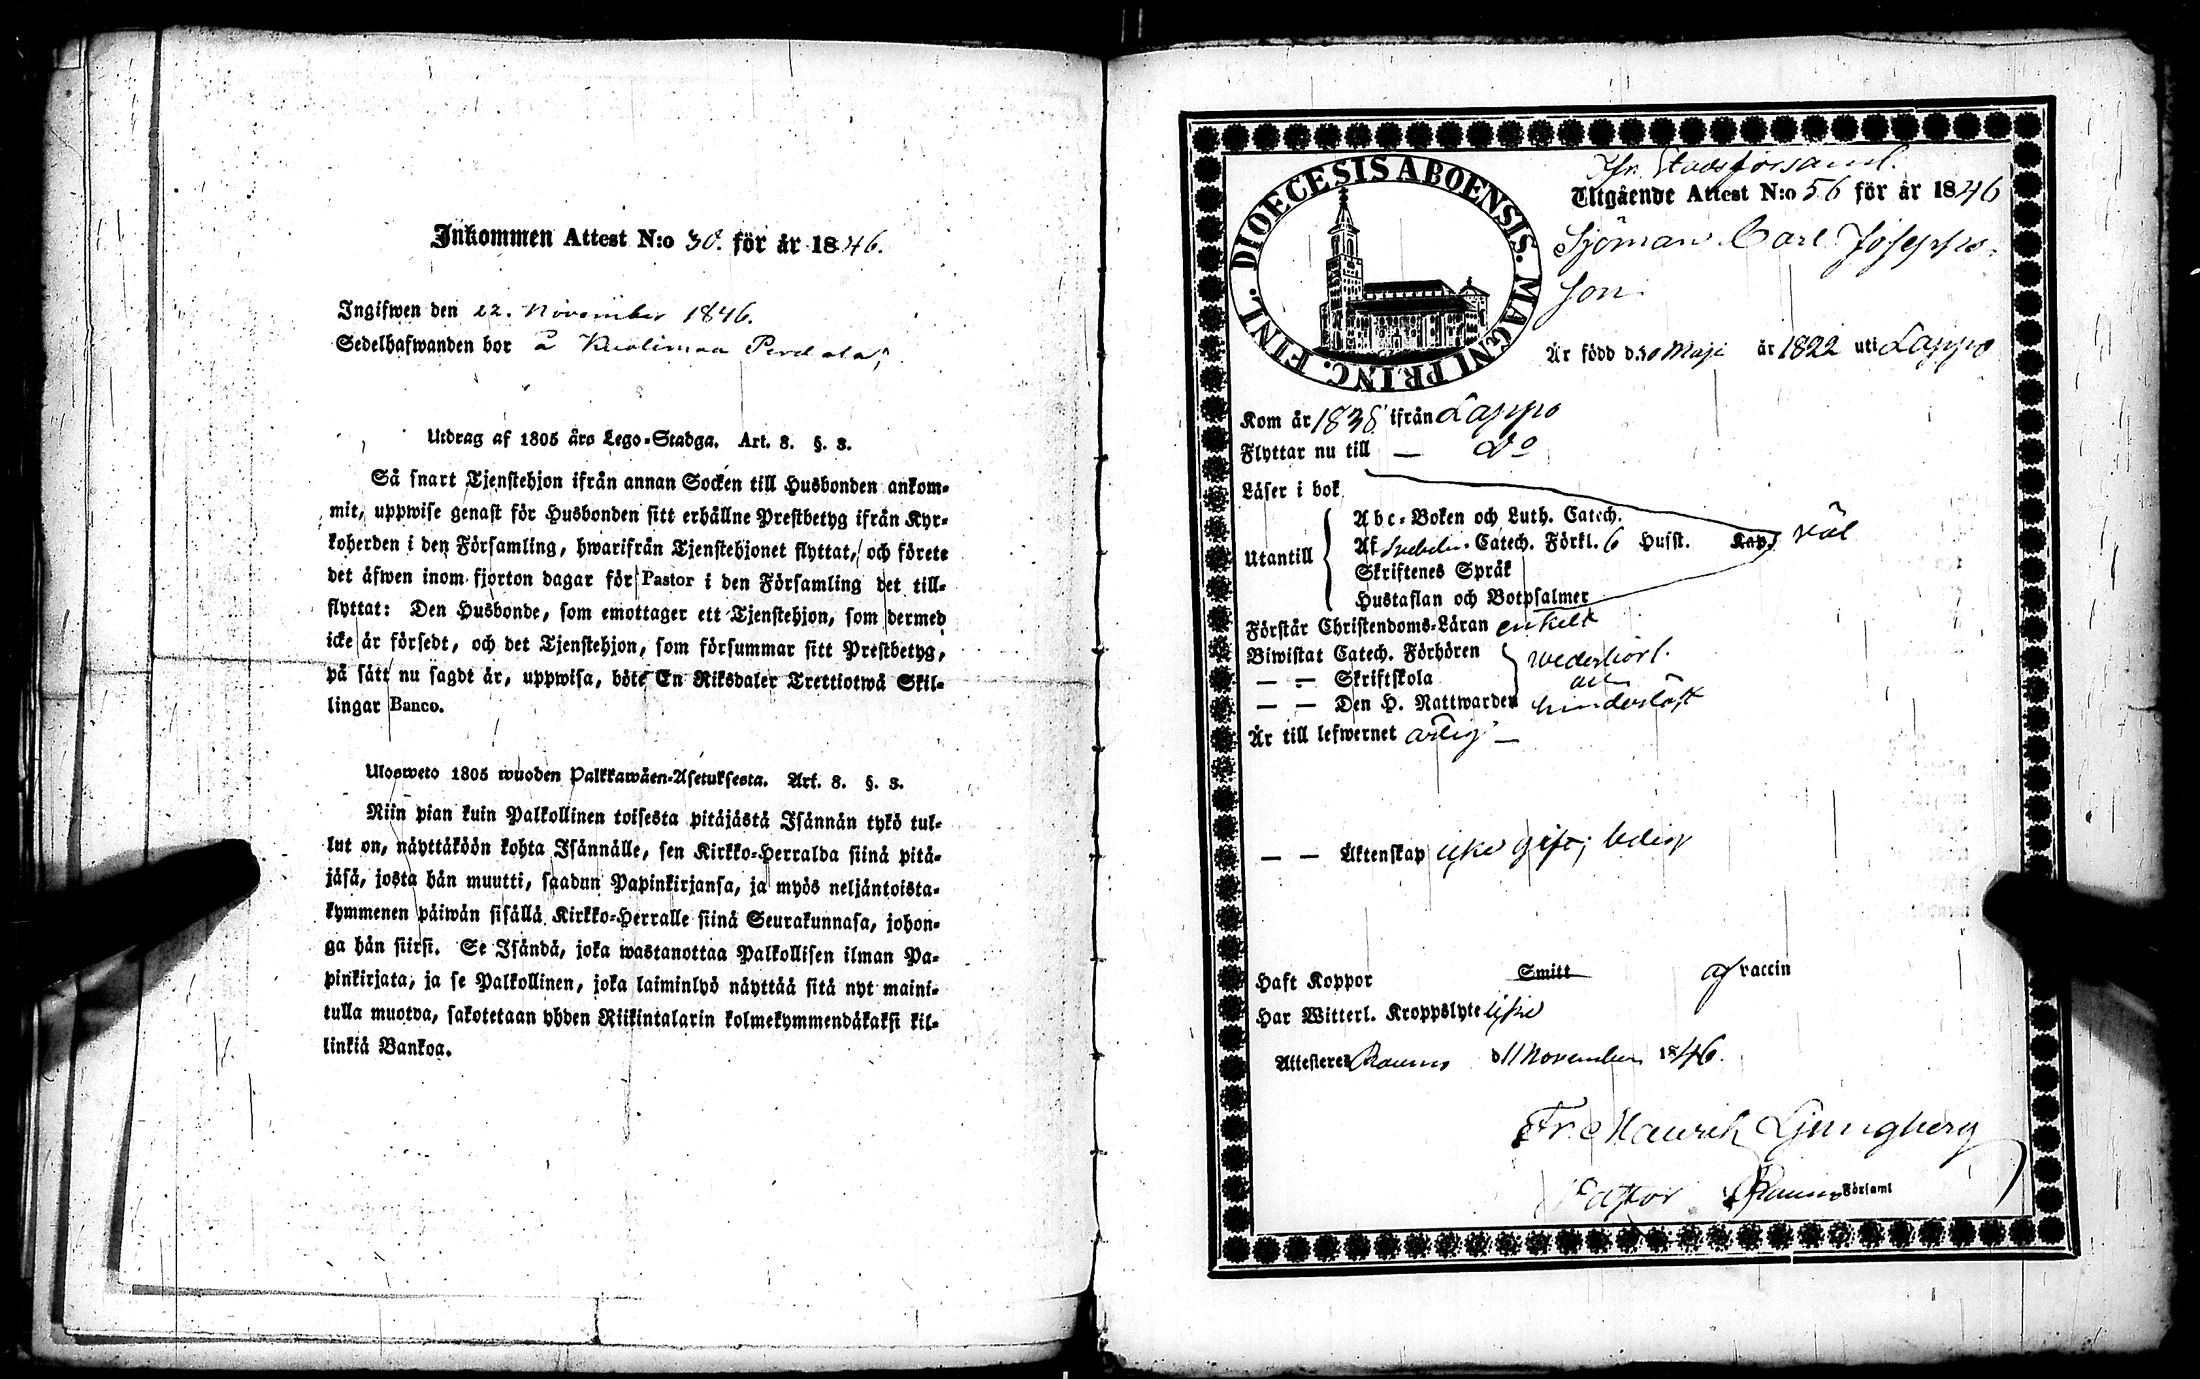 Inkommen Attest N:o 30. för år 1846.
Ingifwen den 22. November 1846.
Sedelhafwanden bor å Kuolimaa Perdala,
Utdrag af 1805 års Lego-Stadga. Art. 8. §. 3.
Så snart Tjenstehjon ifrån annan Socken till Husbonden ankom-
mit, uppwise genast för Husbonden sitt erhållne Prestbetyg ifrån Kyr-
koherden i den Församling, hwarifrån Tjenstehjonet flyttat, och förete
det äfwen inom fjorton dagar för Pastor i den Församling det till-
flyttat: Den Husbonde, som emottager ett Tjenstehjon, som dermed
icke är försedt, och det Tjenstehjon, som försummar sitt Prestbetyg,
på sätt nu sagdt är, uppwisa, böte En Riksdaler Trettiotwå Skil-
lingar Banco.
Ulosweto 1805 wuoden Palkkawäen-Asetuksesta. Art. 8. §. 3.
Niin pian kuin Palkollinen toisesta pitäjästä Isännän tykö tul-
lut on, näyttäköön kohta Isännälle, sen Kirkko-Herralda siinä pitä-
jäsä, josta hän muutti, saadun Papinkirjansa, ja myös neljäntoista-
kymmenen päiwän sisällä Kirkko-Herralle siinä Seurakunnasa, johon-
ga hän siirsi. Se Isändä, joka wastanottaa Palkollisen ilman Pa-
pinkirjata, ja se Palkollinen, joka laiminlyö näyttää sitä nyt maini-
tulla muotoa, sakotetaan yhden Riikintalarin kolmekymmendäkaksi kil-
linkiä Bankoa.
DIOECESIS ABOENSIS. MAGNI PRINC. FINL.
Stadsförsaml.
Utgående Attest N:o 56 för år 1846
Sjöman Carl Josephs-
son
Är född d. 10 Maji år 1822 uti Lappo
Kom år 1838 ifrån Lappo
Flyttar nu till — Do
Läser i bok
Utantill
Abc-Boken och Luth. Catech.
Af Svebelii Catech. Förkl. 6 Hufst. Kap.
Skriftenes Språk
Hustaflan och Botpsalmer
väl
Förstår Christendoms-Läran enkelt
Biwistat Catech. Förhören wederbörl.
— — Skriftskola
— — Den H. Nattwarden hinderlöst
Är till lefwernet ärlig —
— — Äktenskap icke gift; ledig
Haft Koppor Smitt af vaccin
Har Witterl. Kroppslyte icke
Attesteres Raumo d 11 November 1846.
Fr. Henrik Ljungberg
Pastor Raumo Församl